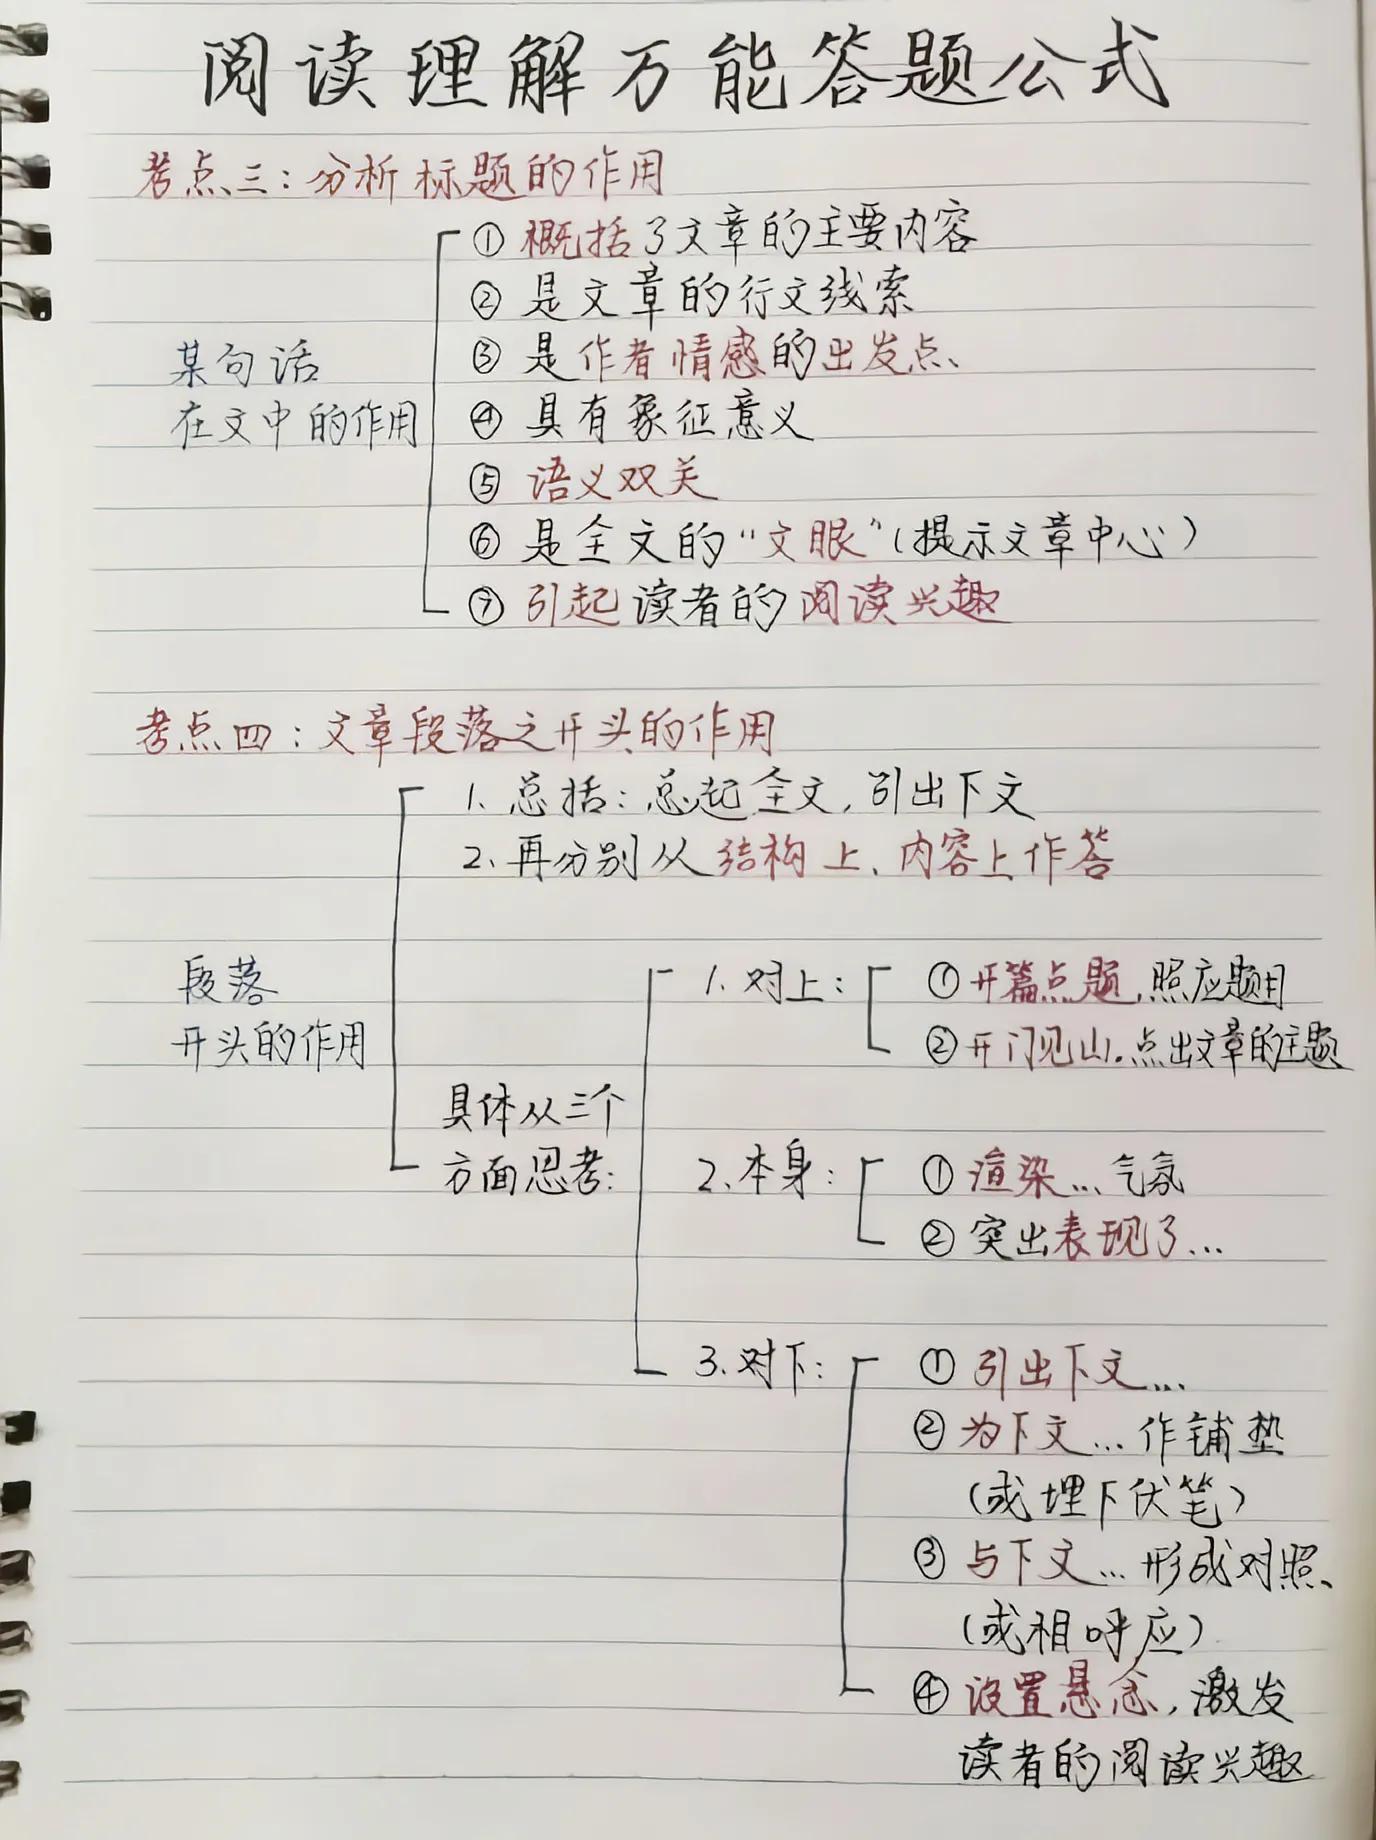 阅读理解万能答题公式
考点三：分析标题的作用
某句话
在文中的作用
① 概括了文章的主要内容
② 是文章的行文线索
③ 是作者情感的出发点、
④ 具有象征意义
⑤ 语义双关
⑥ 是全文的“文眼”(提示文章中心)
⑦ 引起读者的阅读兴趣
考点四：文章段落之开头的作用
段落
开头的作用
1、总括：总起全文，引出下文
2、再分别从结构上、内容上作答
具体从三个
方面思考：
1、对上：
① 开篇点题，照应题目
② 开门见山.点出文章的主题
2、本身：
① 渲染…气氛
② 突出表现了…
3、对下：
① 引出下文…
② 为下文…作铺垫
(或埋下伏笔)
③ 与下文…形成对照、
(或相呼应)
④ 设置悬念，激发
读者的阅读兴趣